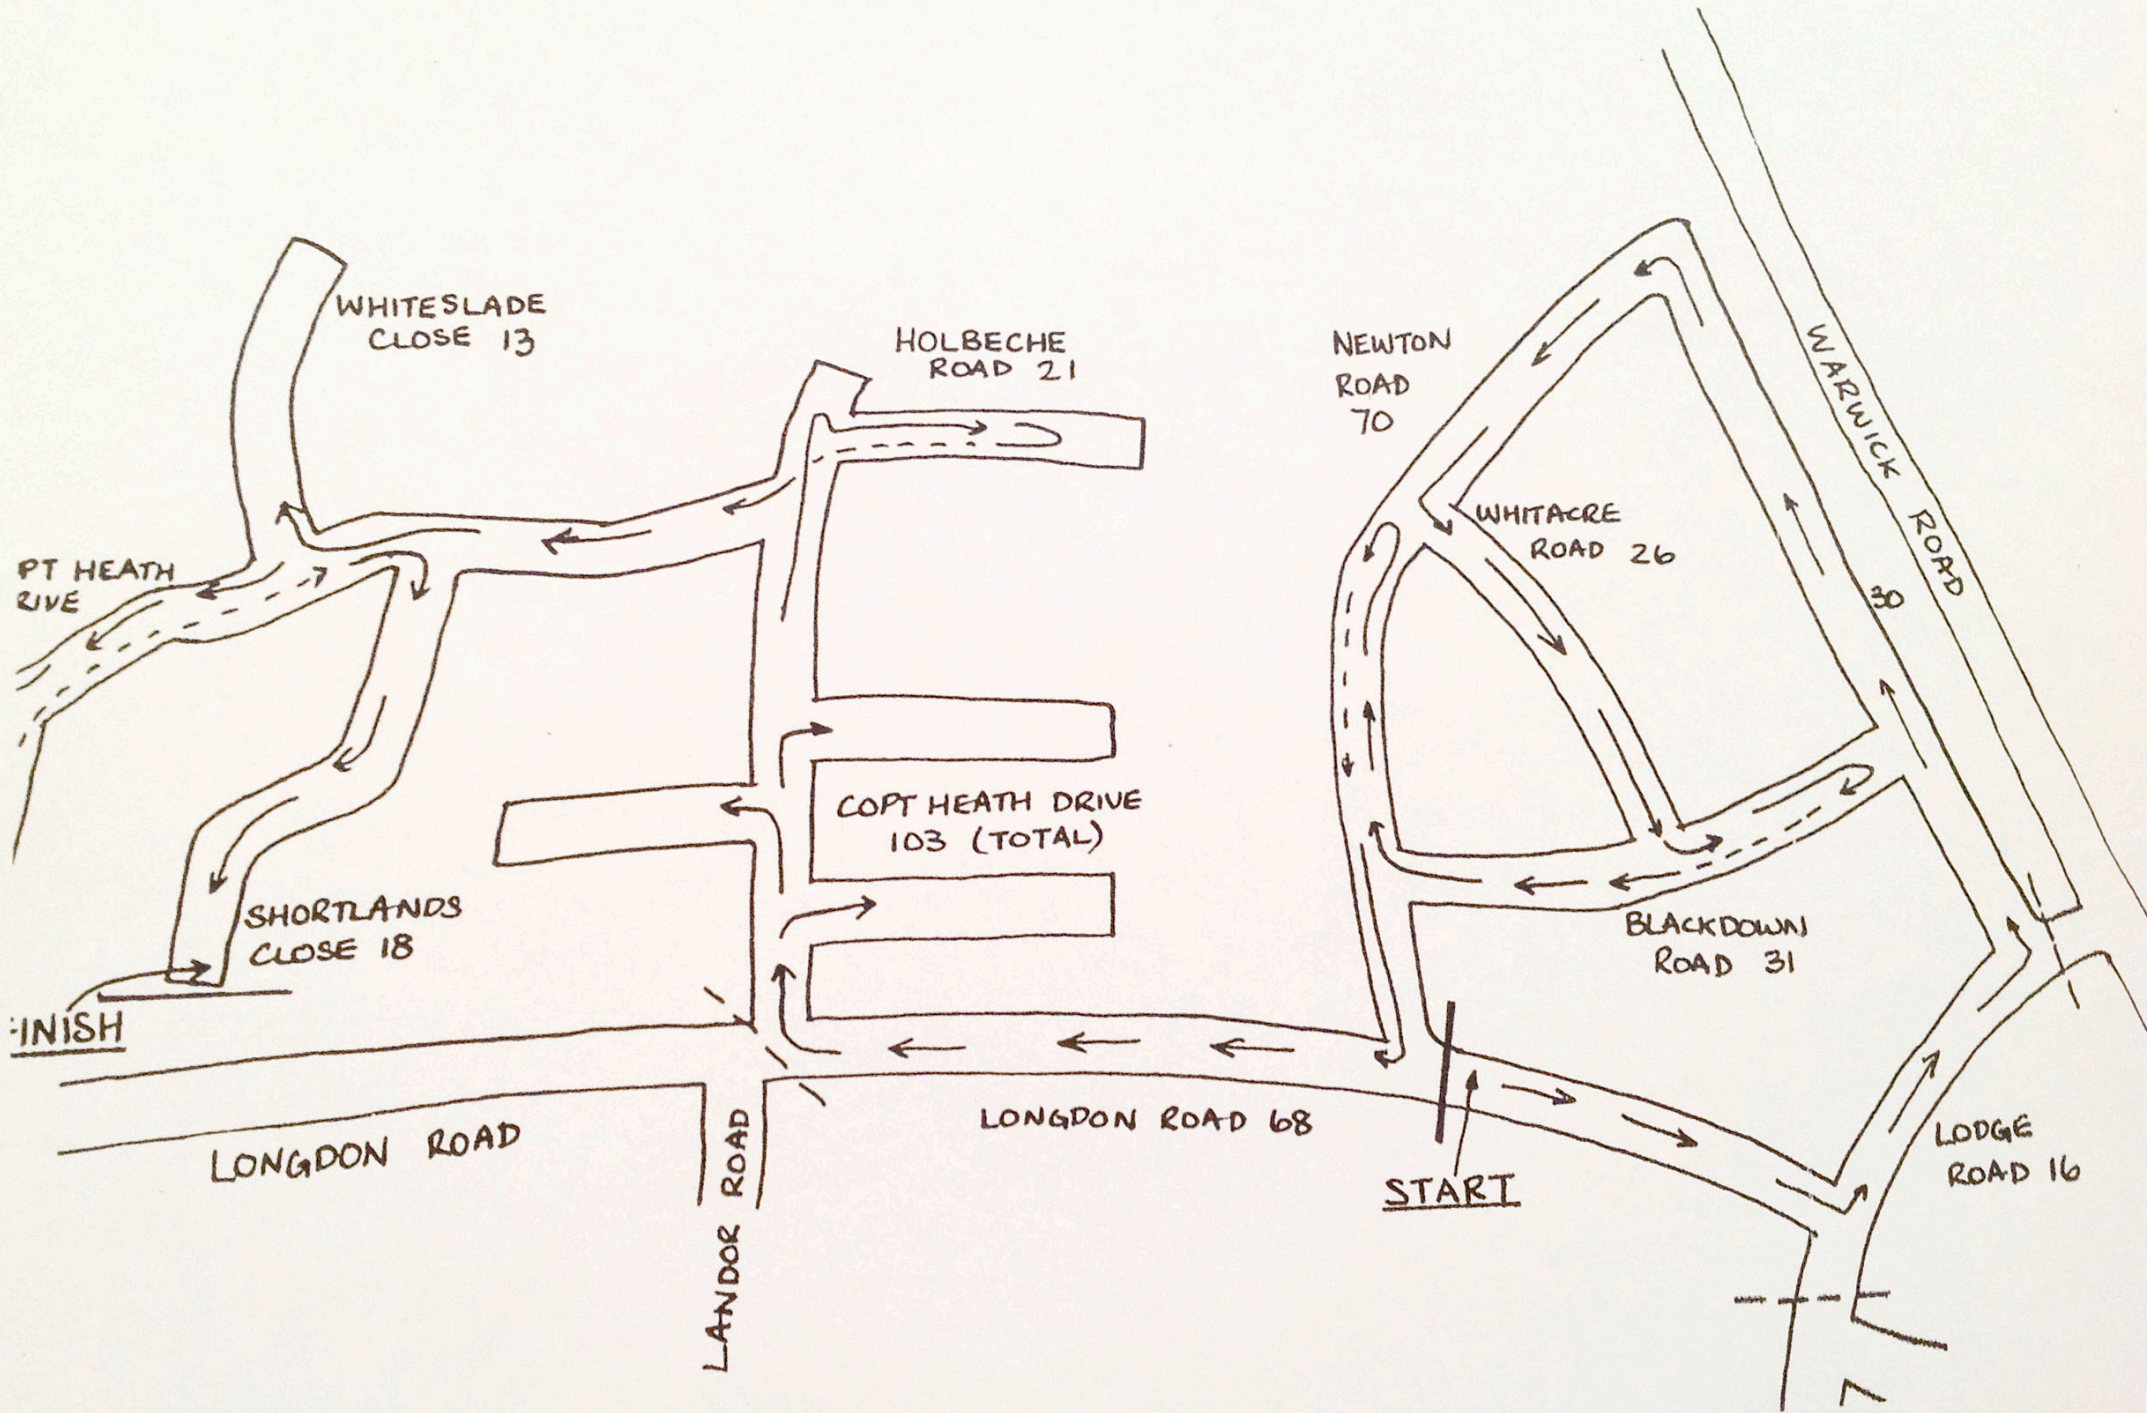 WHITESLADE
CLOSE 13
HOLBECHE
ROAD 21
NEWTON
ROAD
70
WARWICK ROAD
WHITACRE
ROAD 26
PT HEATH
RIVE
30
COPT HEATH DRIVE
103 (TOTAL)
SHORTLANDS
CLOSE 18
BLACKDOWN
ROAD 31
INISH
LONGDON ROAD 68
LODGE
ROAD 16
LONGDON ROAD
START
LANDOR ROAD